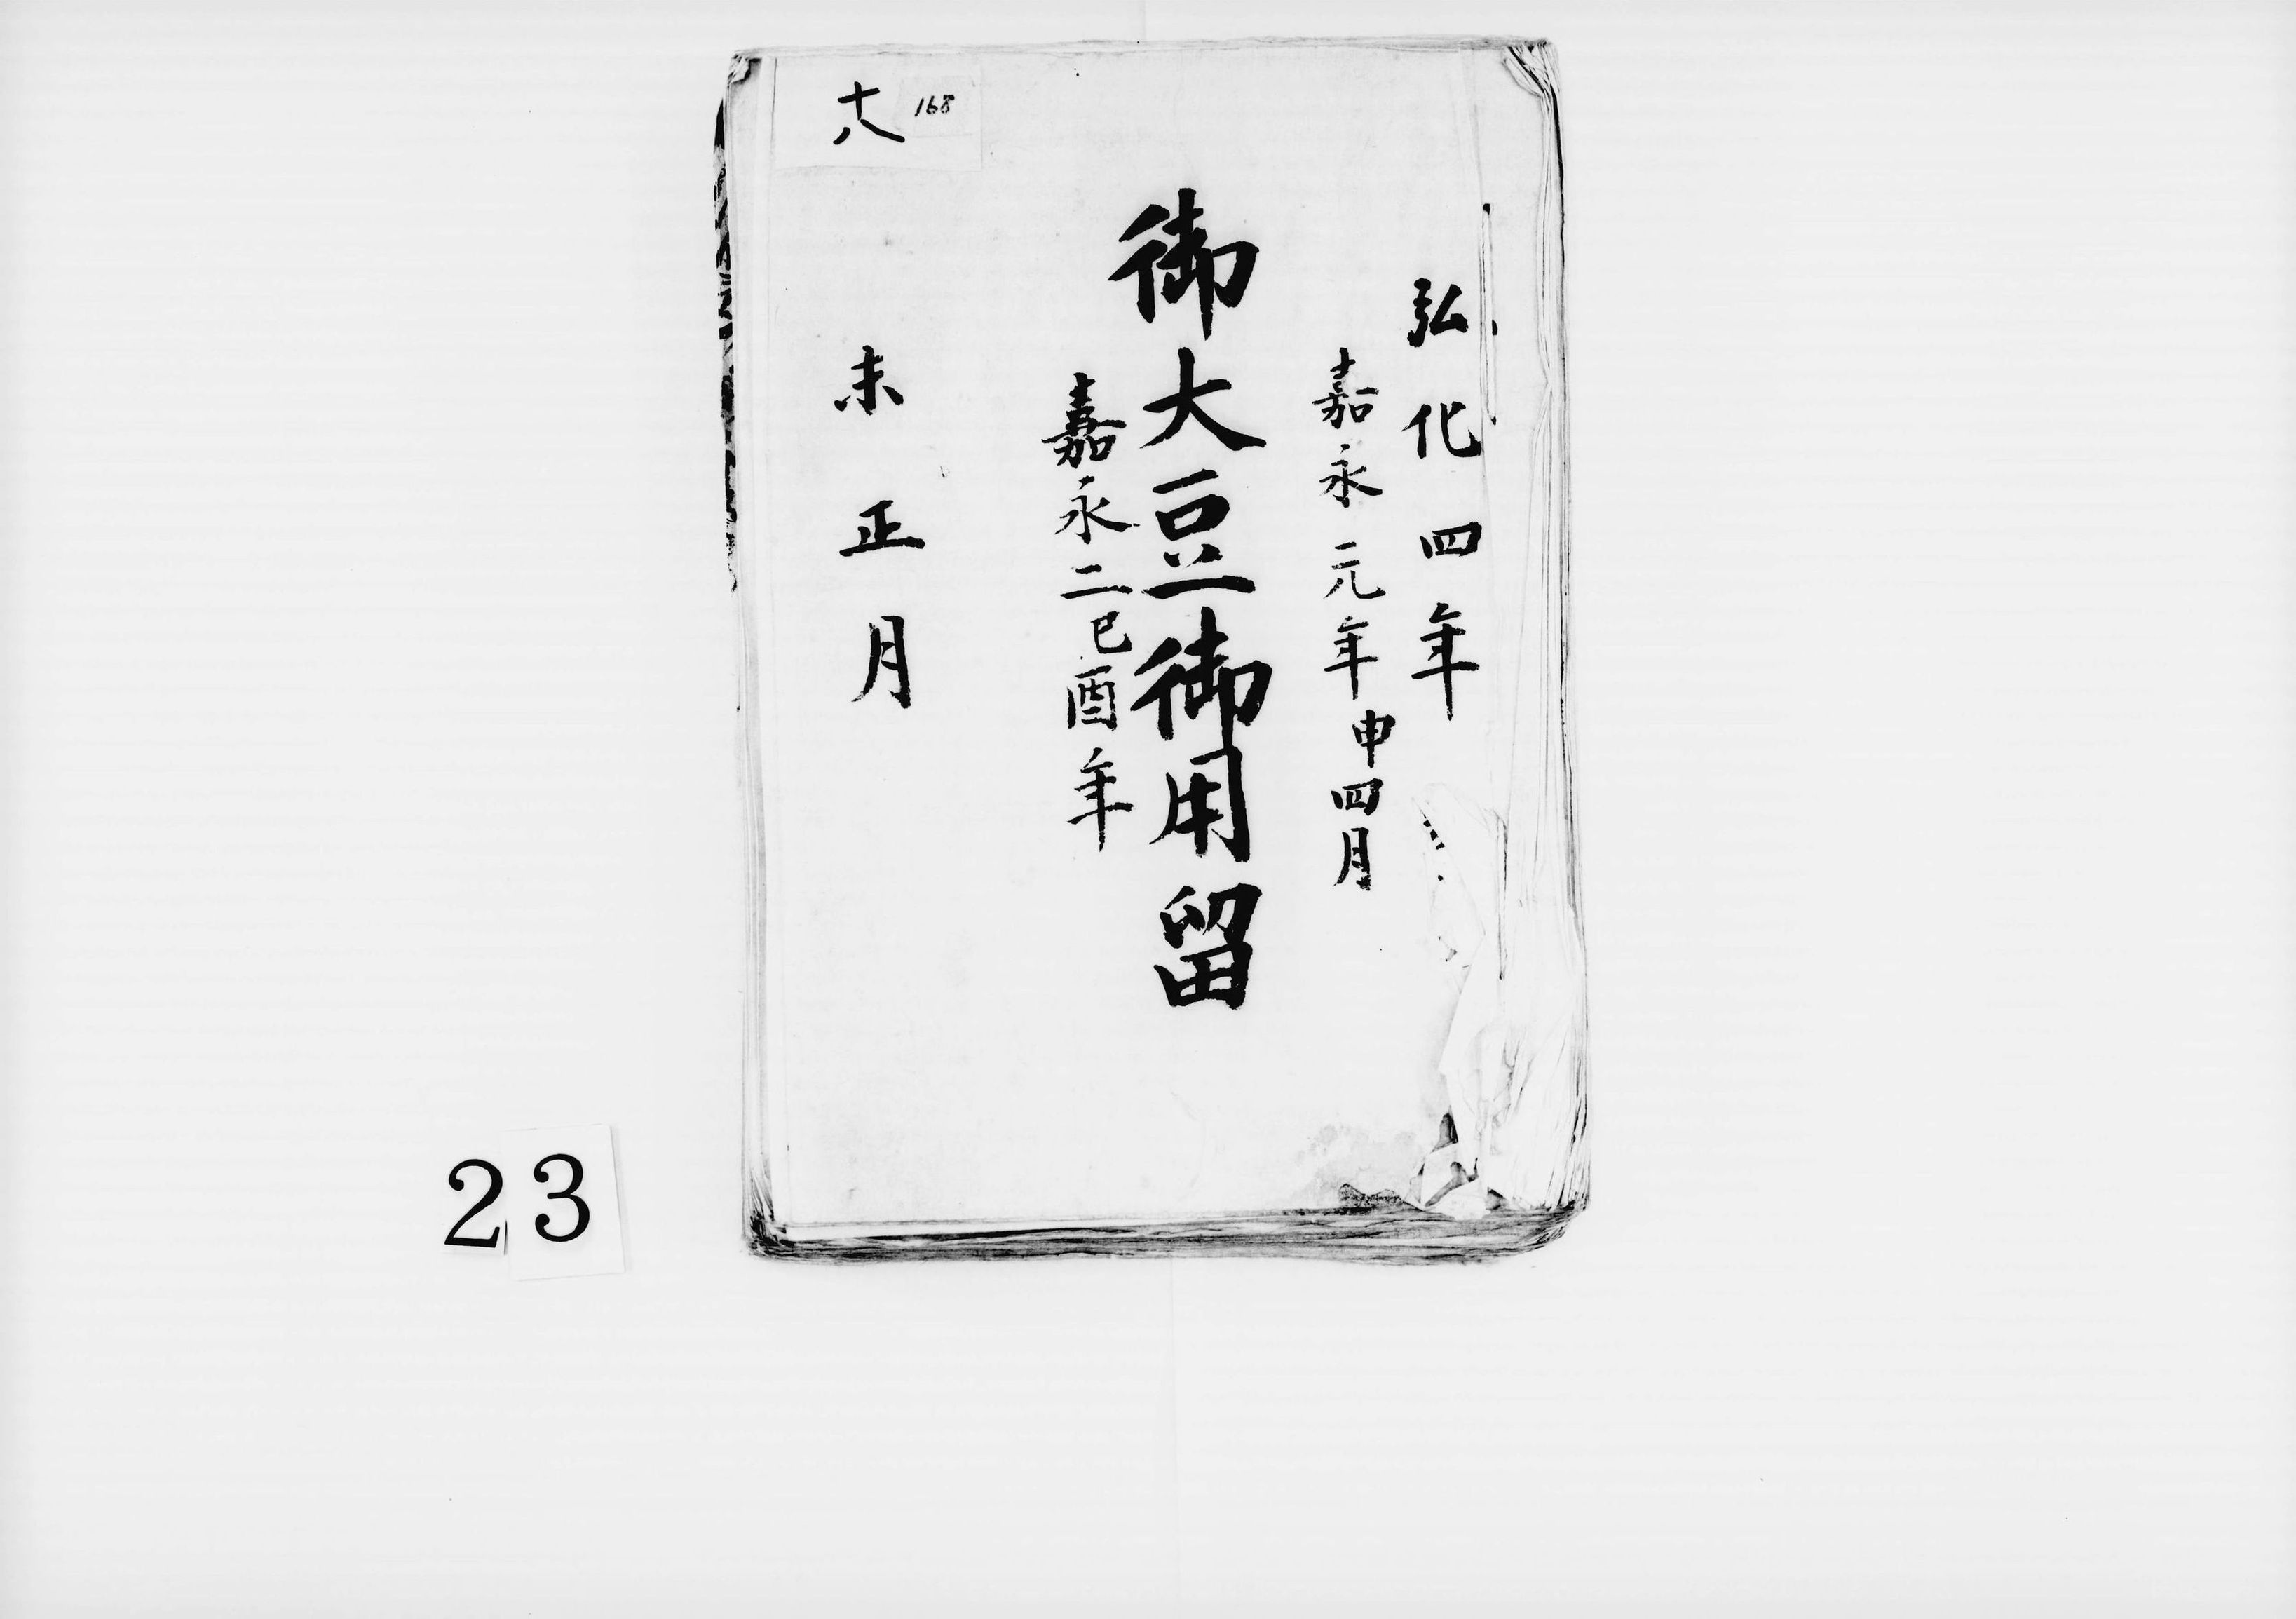 弘化四年
嘉永元年申四月
御大豆御用留
嘉永二己酉年
未正月
十八
168
23